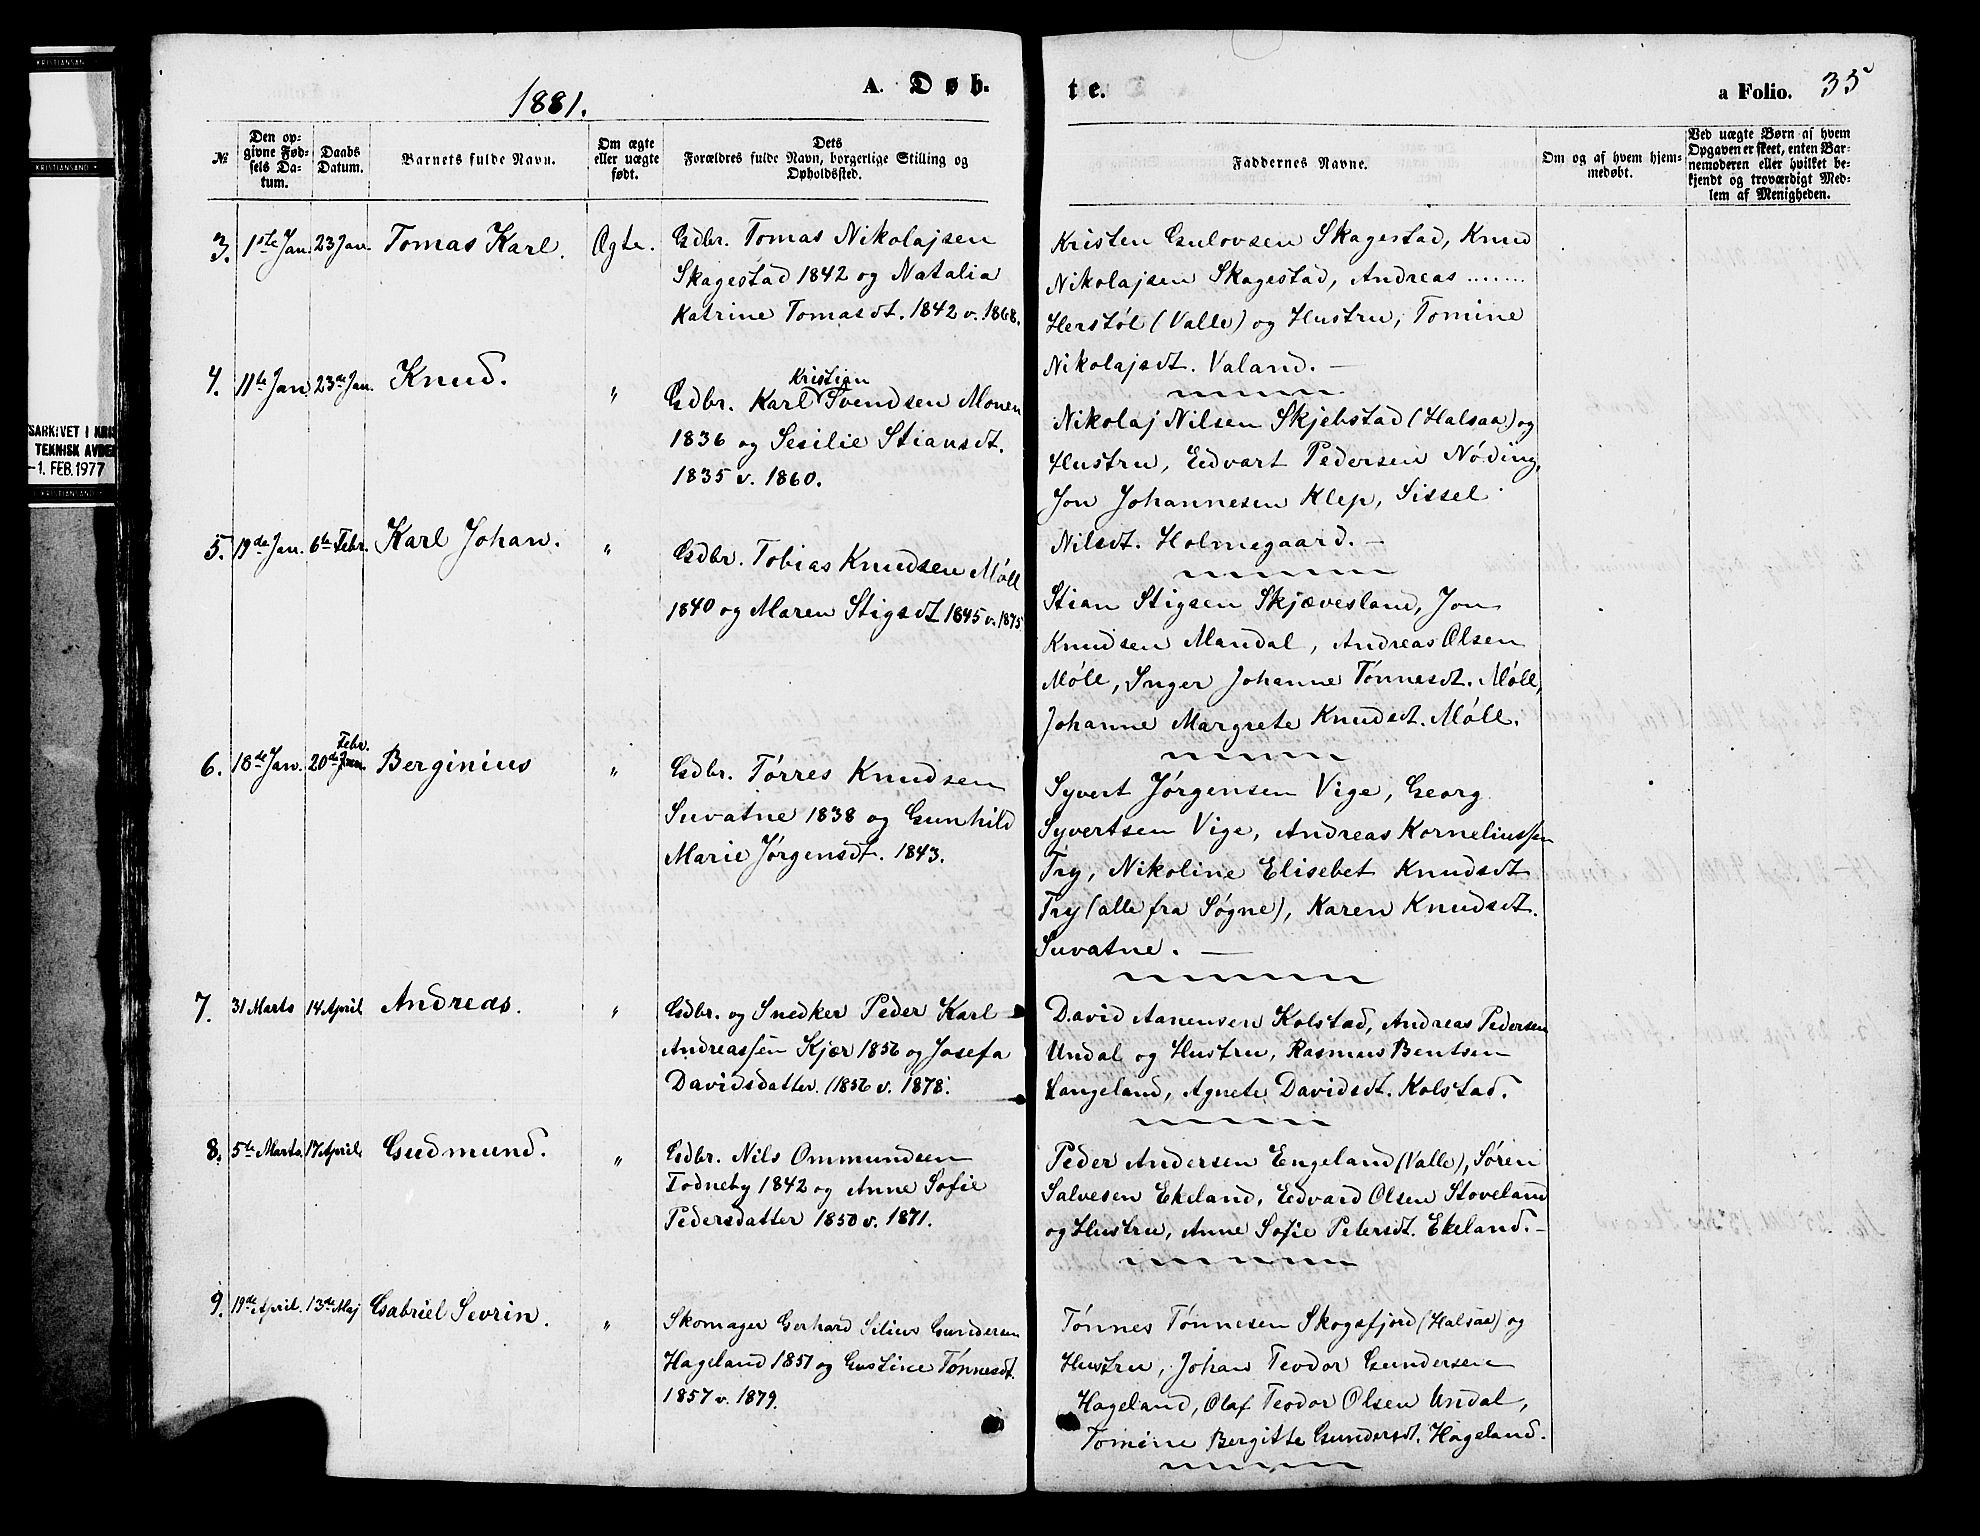 KRISTIANSAN
KRISTIANSAND
SARKIVET I KRIS
TEKNISK AVDE
-1. FEB. 1977
KRISTIANSAND
1881.
A. Døb-
te.
a Folio. 35
№
Den op-
givne Fød-
sels Da-
tum.
Daabs
Datum.
Barnets fulde Navn.
Om ægte
eller uægte
født.
Dets
Forældres fulde Navn, borgerlige Stilling og
Opholdssted.
Faddernes Navne.
Om og af hvem hjem-
medøbt.
Ved uægte Børn af hvem
Opgaven er skeet, enten Bar-
nemoderen eller hvilket be-
kjendt og troværdigt Med-
lem af Menigheden.
3. 1ste Jan. 23 Jan. Tomas Karl. Ægte.
Gdbr. Tomas Nikolajsen
Skagestad 1842 og Natalia
Katrine Tomasdt. 1842 v. 1868.
Kristen Gulovsen Skagestad, Knud
Nikolajsen Skagestad, Andreas .......
Herstøl (Valle) og Hustru, Tomine
Nikolajsdt. Valand. —
4. 11te Jan. 23de Jan. Knud. "
Kristian
Gdbr. Karl Svendsen Monen
1836 og Sesilie Stiansdt.
1835 v. 1860.
Nikolaj Nilsen Skjebstad (Halsaa) og
Hustru, Edvart Pedersen Nøding,
Jon Johannesen Klep, Sissel
Nilsdt. Holmegaard. —
5. 19de Jan. 6te Febr. Karl Johan. "
Gdbr. Tobias Knudsen Møll
1840 og Maren Stigsdt 1845 v. 1875
Stian Stigsen Skjævesland, Jon
Knudsen Mandal, Andreas Olsen
Møll, Inger Johanne Tønnesdt. Møll,
Johanne Margrete Knudsdt. Møll.
6. 18de Jan. 20de Jan. Febr. Berginius "
Gdbr. Tørres Knudsen
Suvatne 1838 og Gunhild
Marie Jørgensdt. 1843.
Syvert Jørgensen Vige, Georg
Syvertsen Vige, Andreas Korneliussen
Try, Nikoline Elisebet Knudsdt
Try (alle fra Søgne), Karen Knudsdt.
Suvatne. —
7. 31 Marts 14 April Andreas. "
Gdbr. og Snedker Peder Karl
Andreassen Kjær 1856 og Josefa
Davidsdatter. (1856 v. 1878.
David Aanensen Kolstad, Andreas Pedersen
Undal og Hustru, Rasmus Bentsen
Langeland, Agnete Davidsdt. Kolstad.
8. 5te Marts. 17 April. Gudmund. "
Gdbr. Nils Ommundsen
Todneby 1842 og Anne Sofie
Pedersdatter 1850 v. 1871.
Peder Andersen Engeland (Valle), Søren
Salvesen Ekeland, Edvard Olsen Stoveland
og Hustru, Anne Sofie Petersdt. Ekeland. —
9. 19de April. 13de Maj Gabriel Sevrin. "
Skomager Gerhard Silius Gundersen
Hageland 1851 og Gustine Tønnesdt.
1857 v. 1879.
Tønnes Tønnesen Skogsfjord (Halsaa) og
Hustru, Johan Teodor Gundersen
Hageland, Olaf Teodor Olsen Undal,
Tomine Bergitte Gundersdt. Hageland.